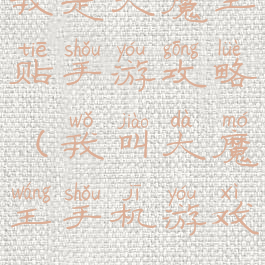 我是大魔王
tiē shǒu yóu gōng lüè
贴手游攻略
wǒ jiào dà mó
（我叫大魔
wáng shǒu jī yóu xì
王手机游戏